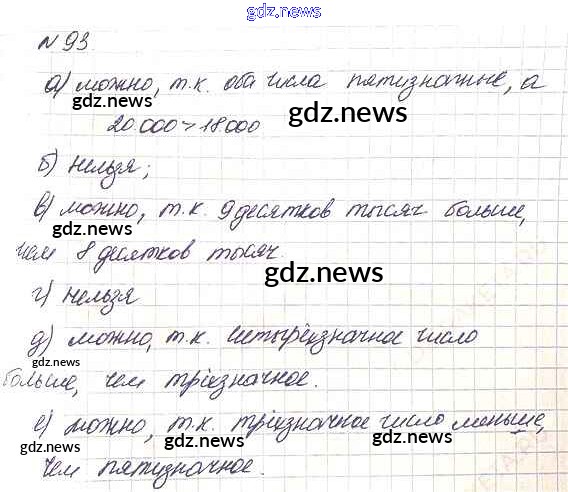 gdz.news
№ 93
а) можно, т.к. оба числа пятизначные, а
gdz.news
gdz.news
20.000 > 18.000
б) нельзя;
в) можно, т.к. 9 десятков тысяч больше,
gdz.news
gdz.news
чем 8 десятков тысяч
gdz.news
г) нельзя
д) можно, т.к. четырёхзначное число
gdz.news
gdz.news
больше, чем трёхзначное.
е) можно, т.к. трёхзначное число меньше,
gdz.news
gdz.news
чем пятизначное.